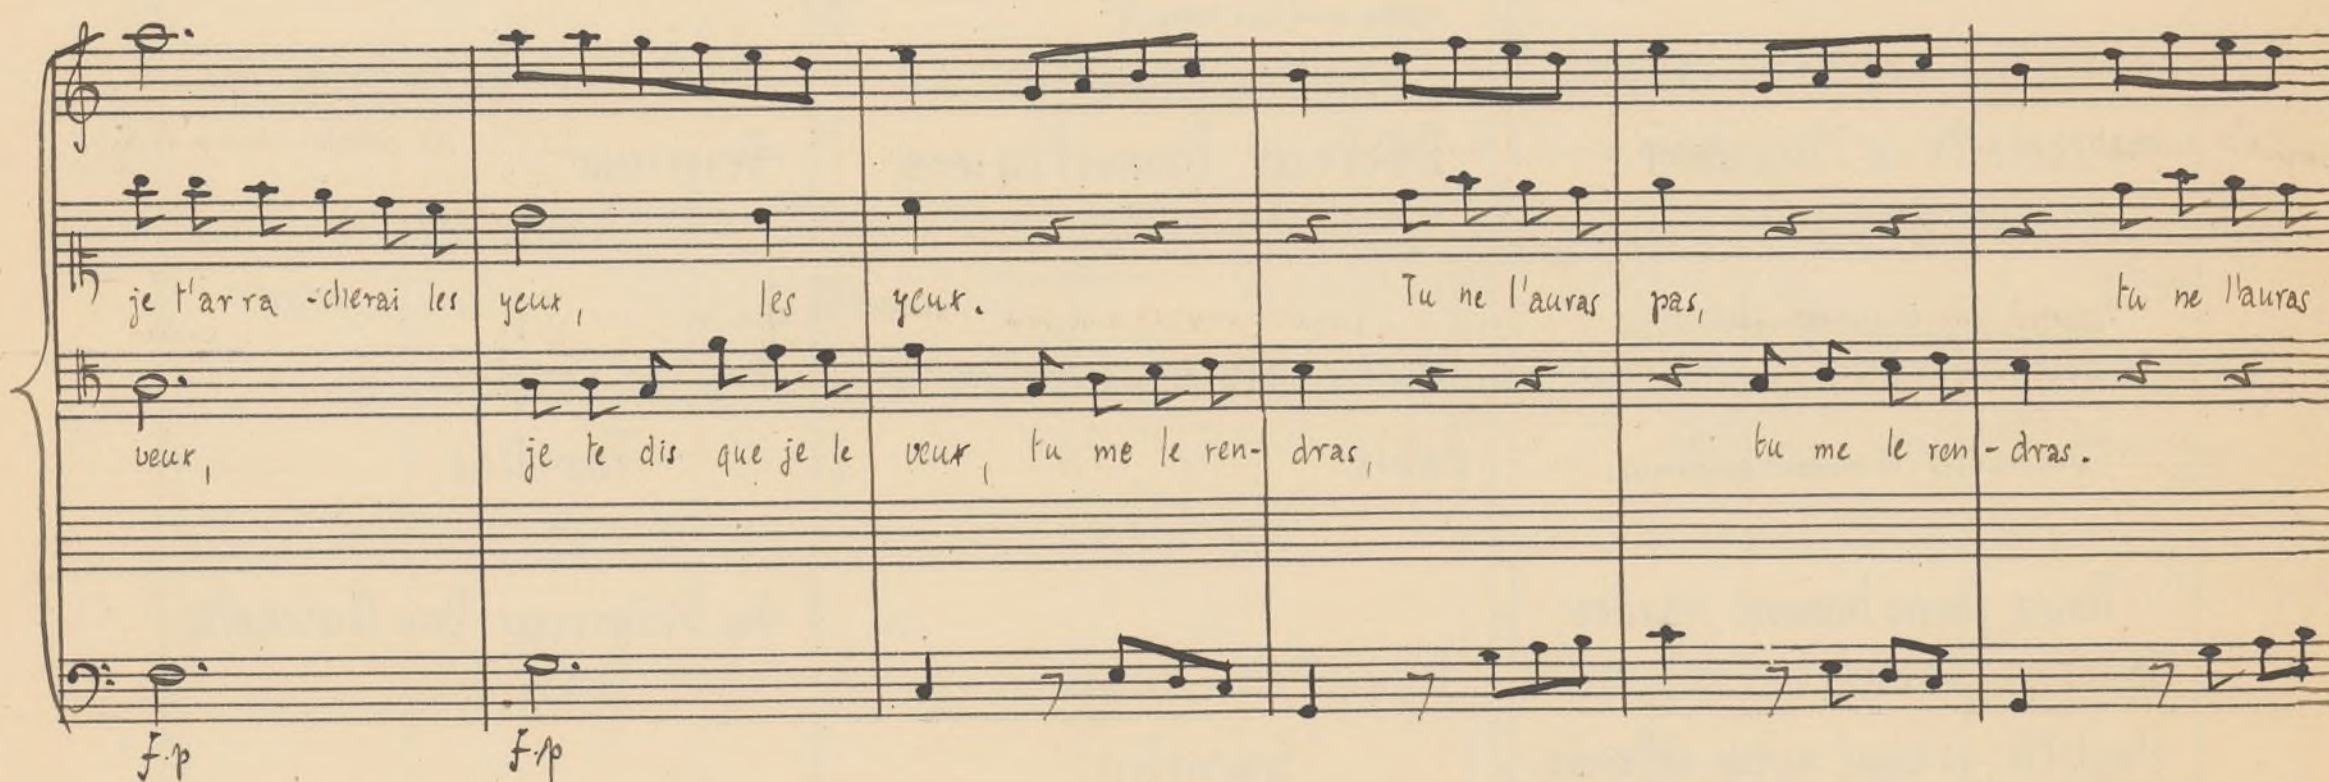 je t'arra -cherai les yeux, les yeux. Tu ne l'auras pas, tu ne l'auras
veux, je te dis que je le veux, tu me le ren- dras, tu me le ren - dras.
F.p F.p